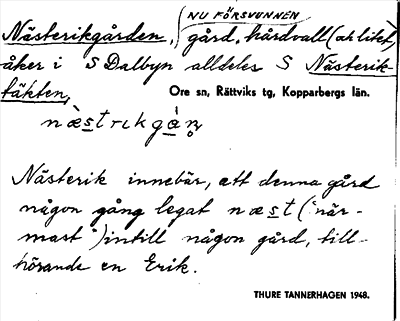 NU FÖRSVUNNEN
Nästerikgården, gård, hårdvall (och litet)
åker i S Dalbyn alldeles S Nästerik-
täkten,
Ore sn, Rättviks tg, Kopparbergs län.
næ̀strıkgàn̥
Nästerik innebär, att denna gård
någon gång legat næst ("när-
mast") intill någon gård, till-
hörande en Erik.
THURE TANNERHAGEN 1948.